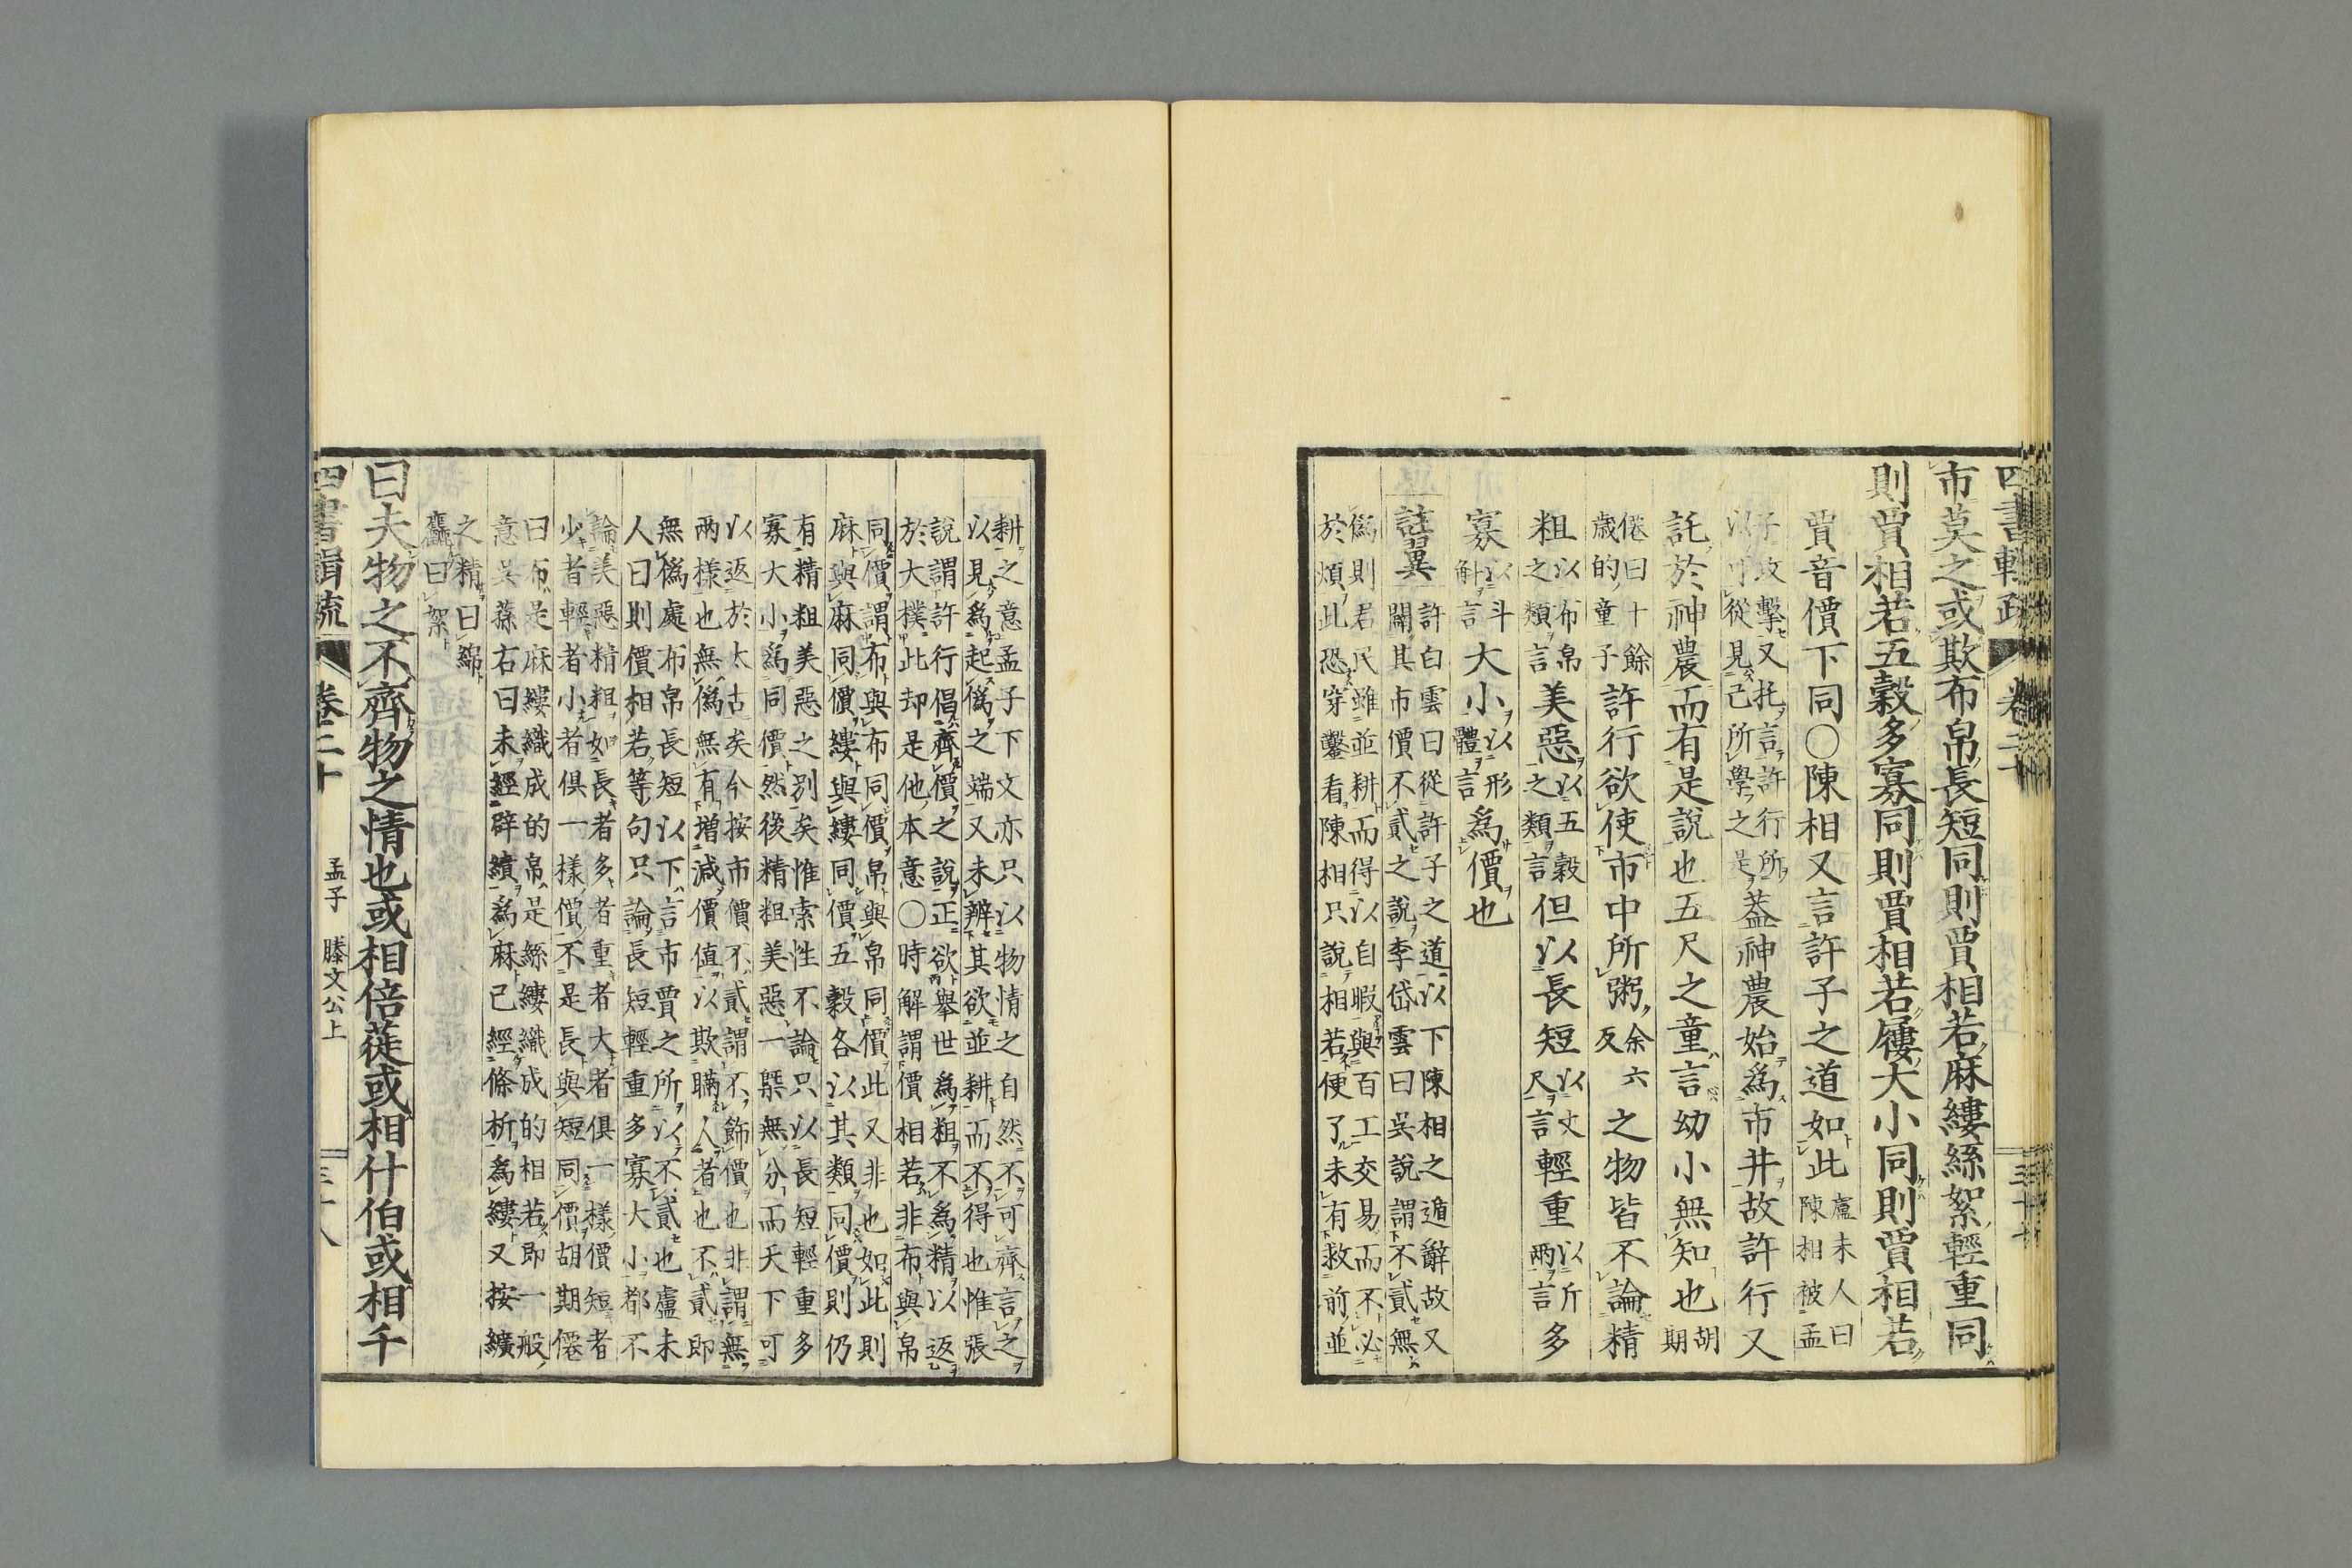 四書輯疏 卷二十 三十七
市莫之或欺布帛長短同則賈相若麻縷絲絮輕重同
則賈相若五穀多寡同則賈相若屨大小同則賈相若
賈音價下同〇陳相又言許子之道如此盧未人曰
陳相被孟
子攻擊又托言許行所
以可從見己所學之是蓋神農始爲市井故許行又
託於神農而有是說也五尺之童言幼小無知也胡
期
僊曰十餘
歲的童子許行欲使市中所粥余六
反之物皆不論精
粗以布帛
之類言美惡以五穀
之類言但以長短以丈
尺言輕重以斤
兩言多
寡以斗
斛言大小以形
體言爲價也
詿異許白雲曰從許子之道以下陳相之遁辭故又
闢其市價不貳之說李岱雲曰吳說謂不貳無
僞則君民雖並耕而得以自暇與百工交易而不必
於煩此恐穿鑿看陳相只說相若便了未有救前並
耕之意孟子下文亦只以物情之自然不可齊言之
以見爲起僞之端又未辨其欲並耕而不得也惟張
說謂許行倡齊價之說正欲舉世爲粗不爲精以返
於大樸此却是他本意〇時解謂價相若非布與帛
同價謂布與布同價帛與帛同價此又非也如此則
麻與麻同價縷與縷同價五穀各以其類同價則仍
有精粗美惡之別矣惟索性不論只以長短輕重多
寡大小爲同價然後精粗美惡一槩無分而天下可
以返於太古矣今按市價不貳謂不飾價也非謂無
兩樣也無僞無有增減價値以欺瞞人者也不貳即
無僞處布帛長短以下言市賈之所以不貳也盧未
人曰則價相若等句只論長短輕重多寡大小都不
論美惡精粗如長者多者重者大者俱一樣價短者
少者輕者小者俱一樣價不是長與短同價胡期僊
曰布是麻縷織成的帛是絲縷織成的相若即一般
意吳蓀右曰未經辟績爲麻已經條析爲縷又按纊
之精曰綿
麤曰絮
曰夫物之不齊物之情也或相倍蓰或相什伯或相千
四書輯疏 卷二十 孟子 滕文公上 三十八